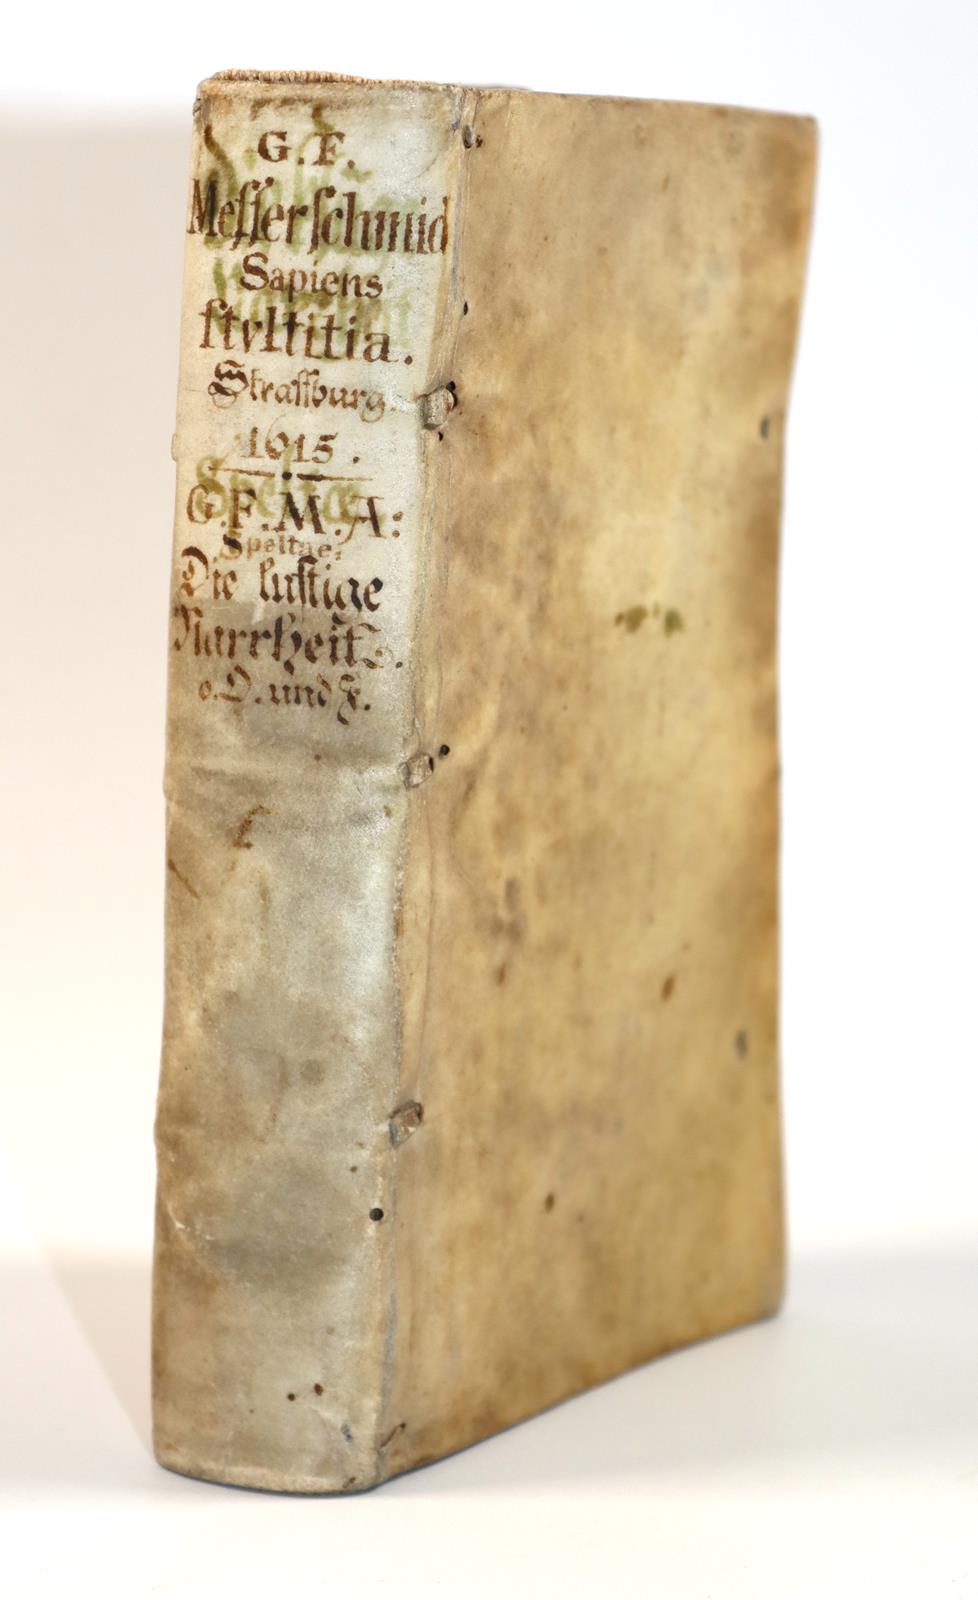 G. F.
Meſſerſchmid
Sapiens
ſtvltitia.
Straſſburg.
1615.
G. F. M. A:
Speltae:
Die luſtige
Narrheit
o. O. und J.